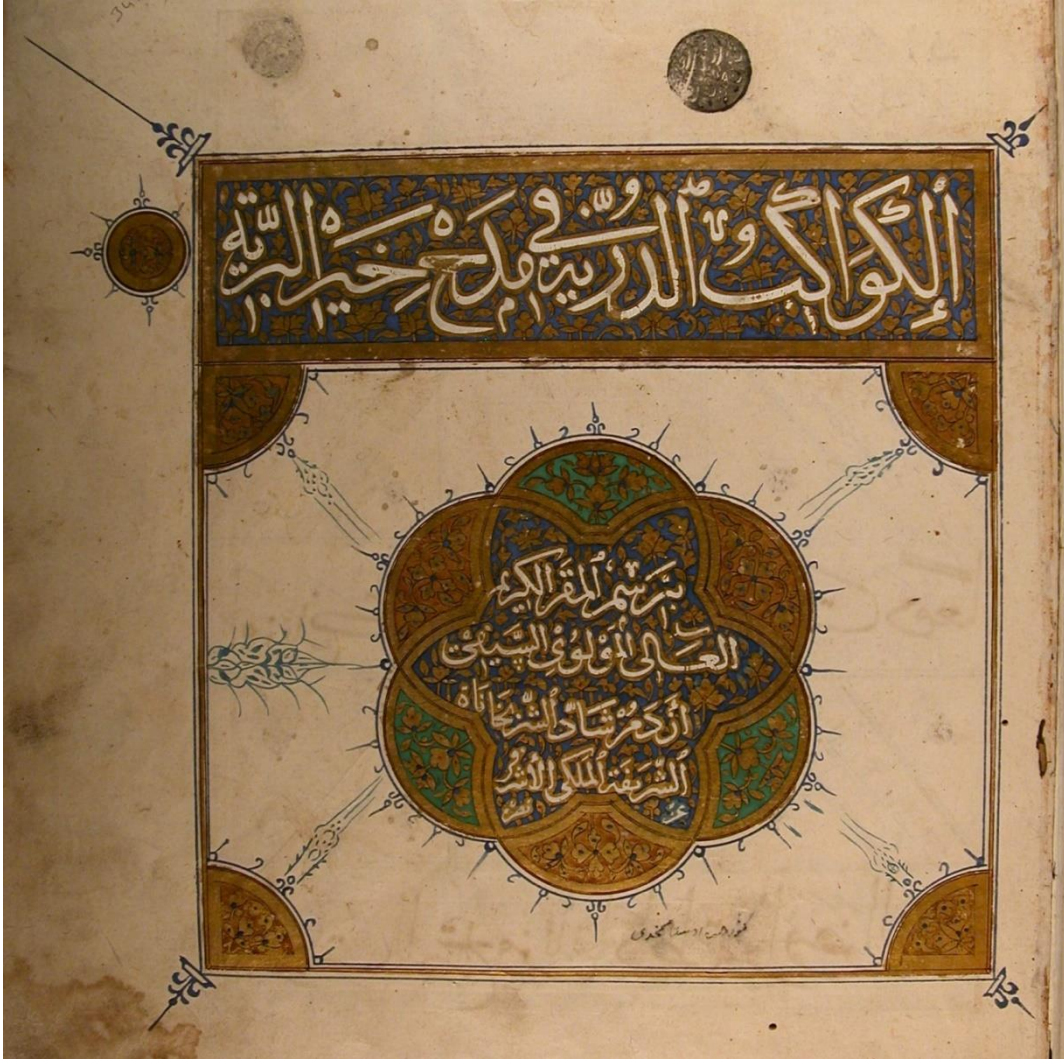 الكَوَاكِبُ الدُّرِّيَّة فِي مَدْح خَيْرِ البَرِيَّة
برسم المقر الكريم
العالي المولوي السيفي
أزدمر شاد الشربخاناه
الشريفة الملكي الأشرفي
عز نصره